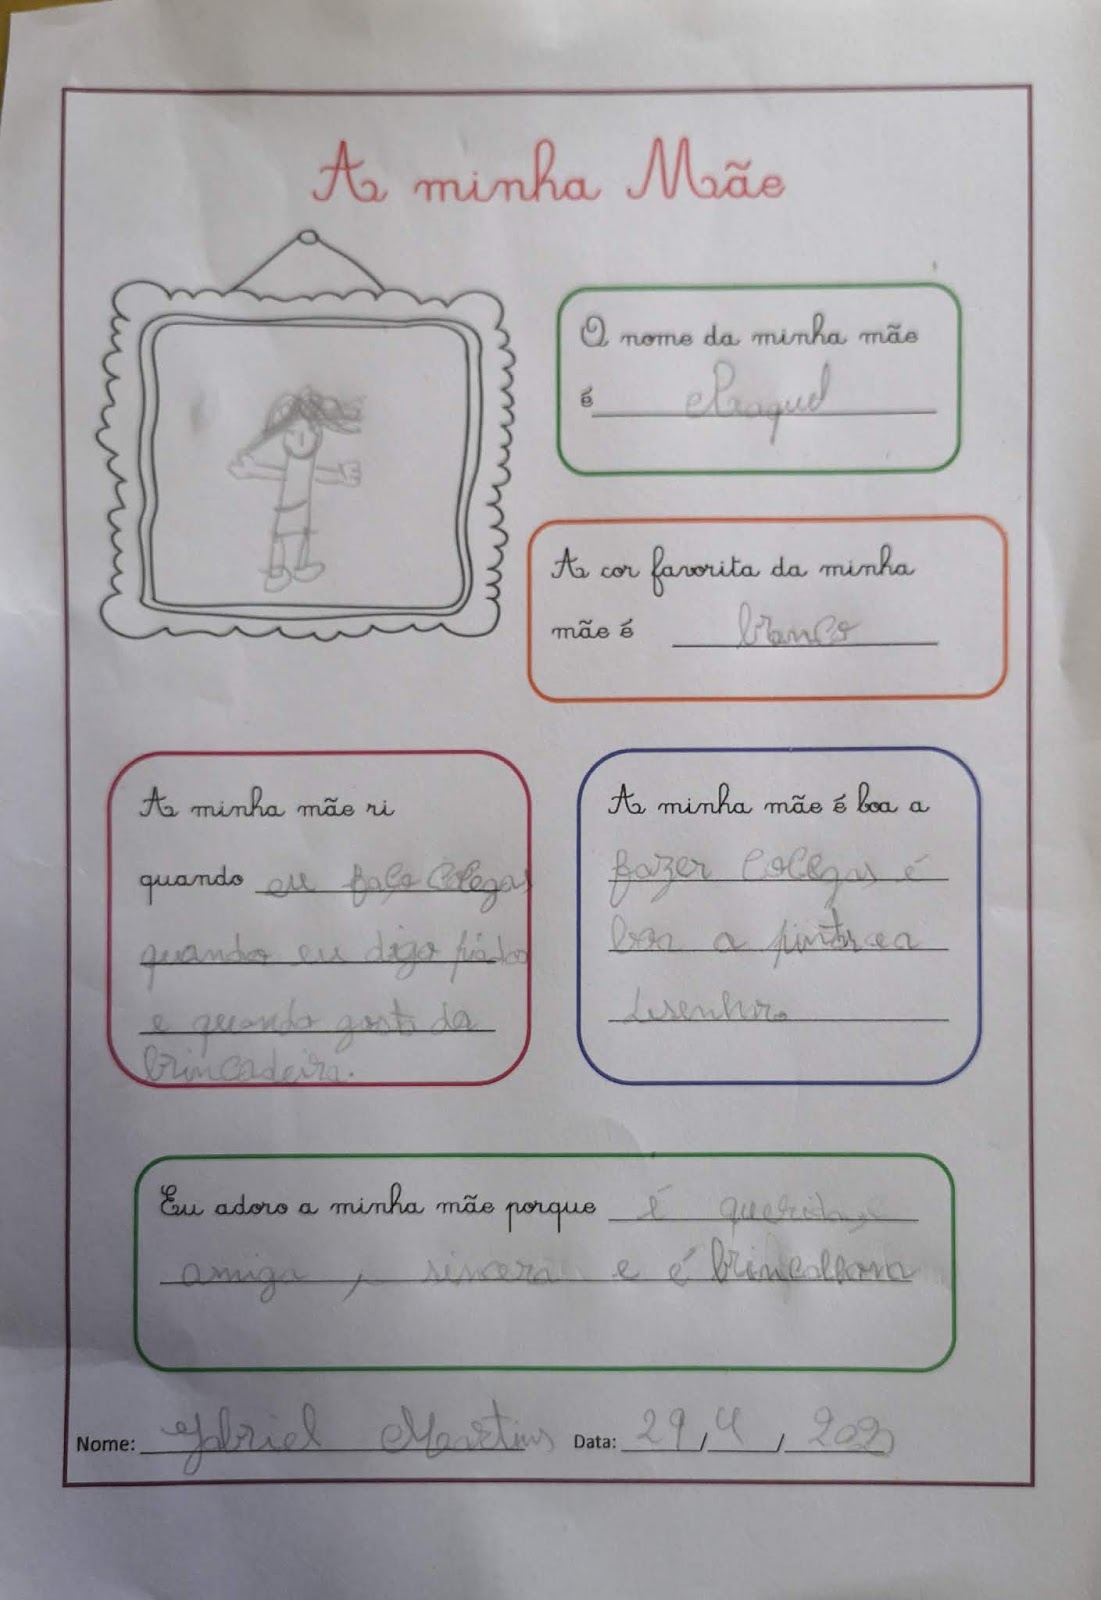 A minha Mãe
O nome da minha mãe
é Raquel
A cor favorita da minha
mãe é branco
A minha mãe ri
quando eu faço cócegas
quando eu digo piadas
e quando gosto da
brincadeira.
A minha mãe é boa a
fazer cócegas é
boa a pintar e a
desenhar.
Eu adoro a minha mãe porque é querida,
amiga, sincera e é brincalhona
Nome: Gabriel Martins Data: 29/4/